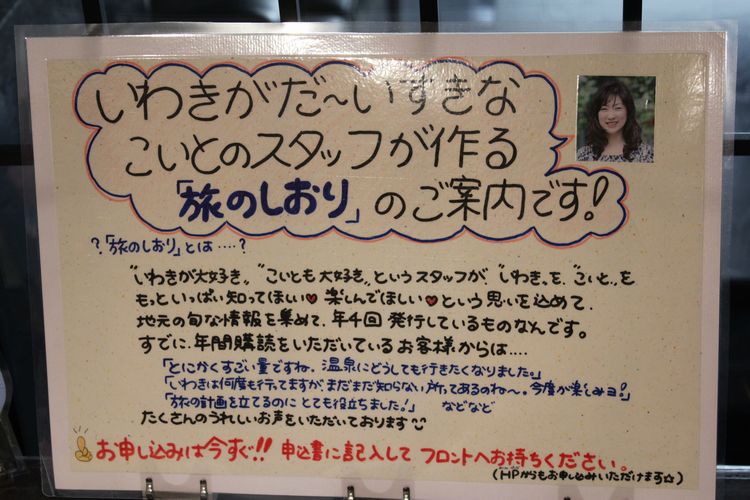 いわきがだ〜いすきな
こいとのスタッフが作る
「旅のしおり」のご案内です!
?「旅のしおり」とは‥‥?
"いわきが大好き" "こいとも大好き"というスタッフが、"いわき"を、"こいと"を
もっといっぱい知ってほしい♥ 楽しんでほしい♥という思いを込めて、
地元の旬な情報を集めて、年4回発行しているものなんです。
すでに、年間購読をいただいているお客様からは‥‥
「とにかくすごい量ですね。温泉にどうしても行きたくなりました。」
「いわきは何度も行ってますが、まだまだ知らない所ってあるのね〜。今度が楽しみヨ!」
「旅の計画を立てるのにとても役立ちました!」 などなど
たくさんのうれしいお声をいただいております
お申し込みは今すぐ!! 申込書に記入してフロントへお持ちください。
(HPからもお申し込みいただけます☆)